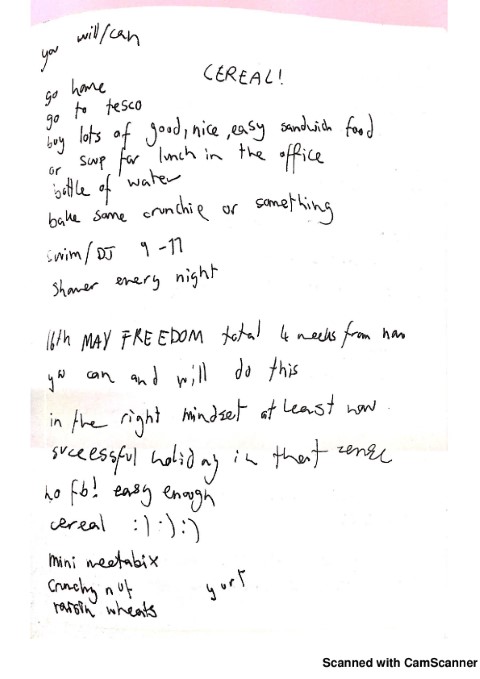 you will/can
CEREAL!
go home
go to tesco
buy lots of good, nice, easy sandwich food
or soup for lunch in the office
bottle of water
bake some crunchie or something
swim/DJ 9-11
shower every night
16th MAY FREEDOM total 4 weeks from now
you can and will do this
in the right mindset at least now.
successful holiday in that sense
no fb! easy enough
cereal :) :) :)
mini weetabix
crunchy nut
yurt
raisin wheats
Scanned with CamScanner